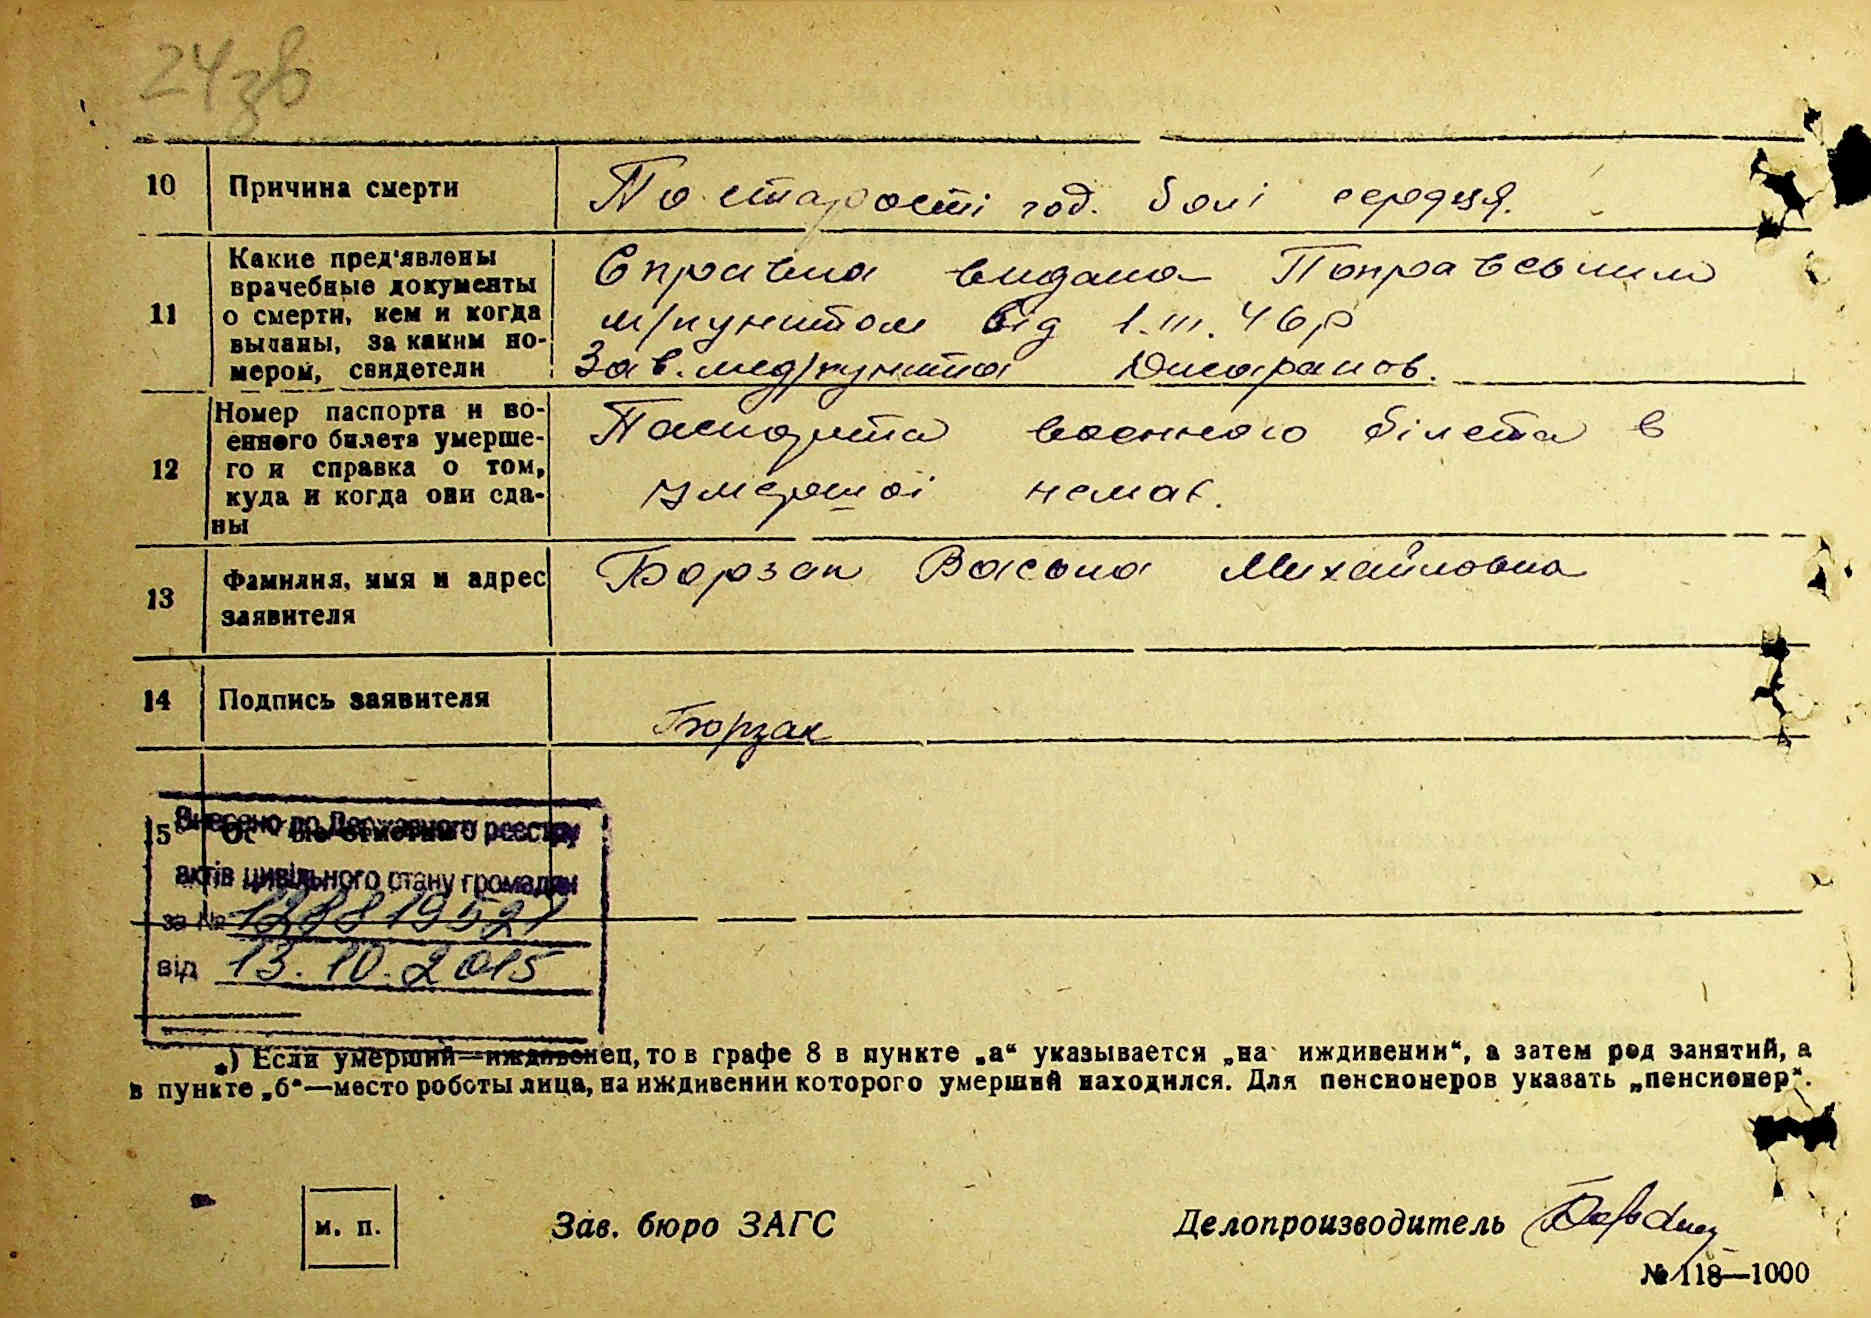 24зв
10 Причина смерти По старості год. болі серодця.
11 Какие пред'явлены
врачебные документы
о смерти, кем и когда
выданы, за каким но-
мером, свидетели
Справка видана
м/пунктом від 1.III.46р
Зав. мед/пункта
12 Номер паспорта и во-
енного билета умерше-
го и справка о том,
куда и когда они сда-
ны
Паспорта военного білета в
умершої немає.
13 Фамилия, имя и адрес
заявителя
Борзак Михайловна
14 Подпись заявителя
Борзак
Внесено до Державного реєстру
актів цивільного стану громадян
за №
від 13.10.2015
*) Если умерший—иждивенец, то в графе 8 в пункте „а“ указывается „на иждивении“, а затем род занятий, а
в пункте „б“—место роботы лица, на иждивении которого умерший находился. Для пенсионеров указать „пенсионер“.
м. п. Зав. бюро ЗАГС Делопроизводитель
№ 118—1000